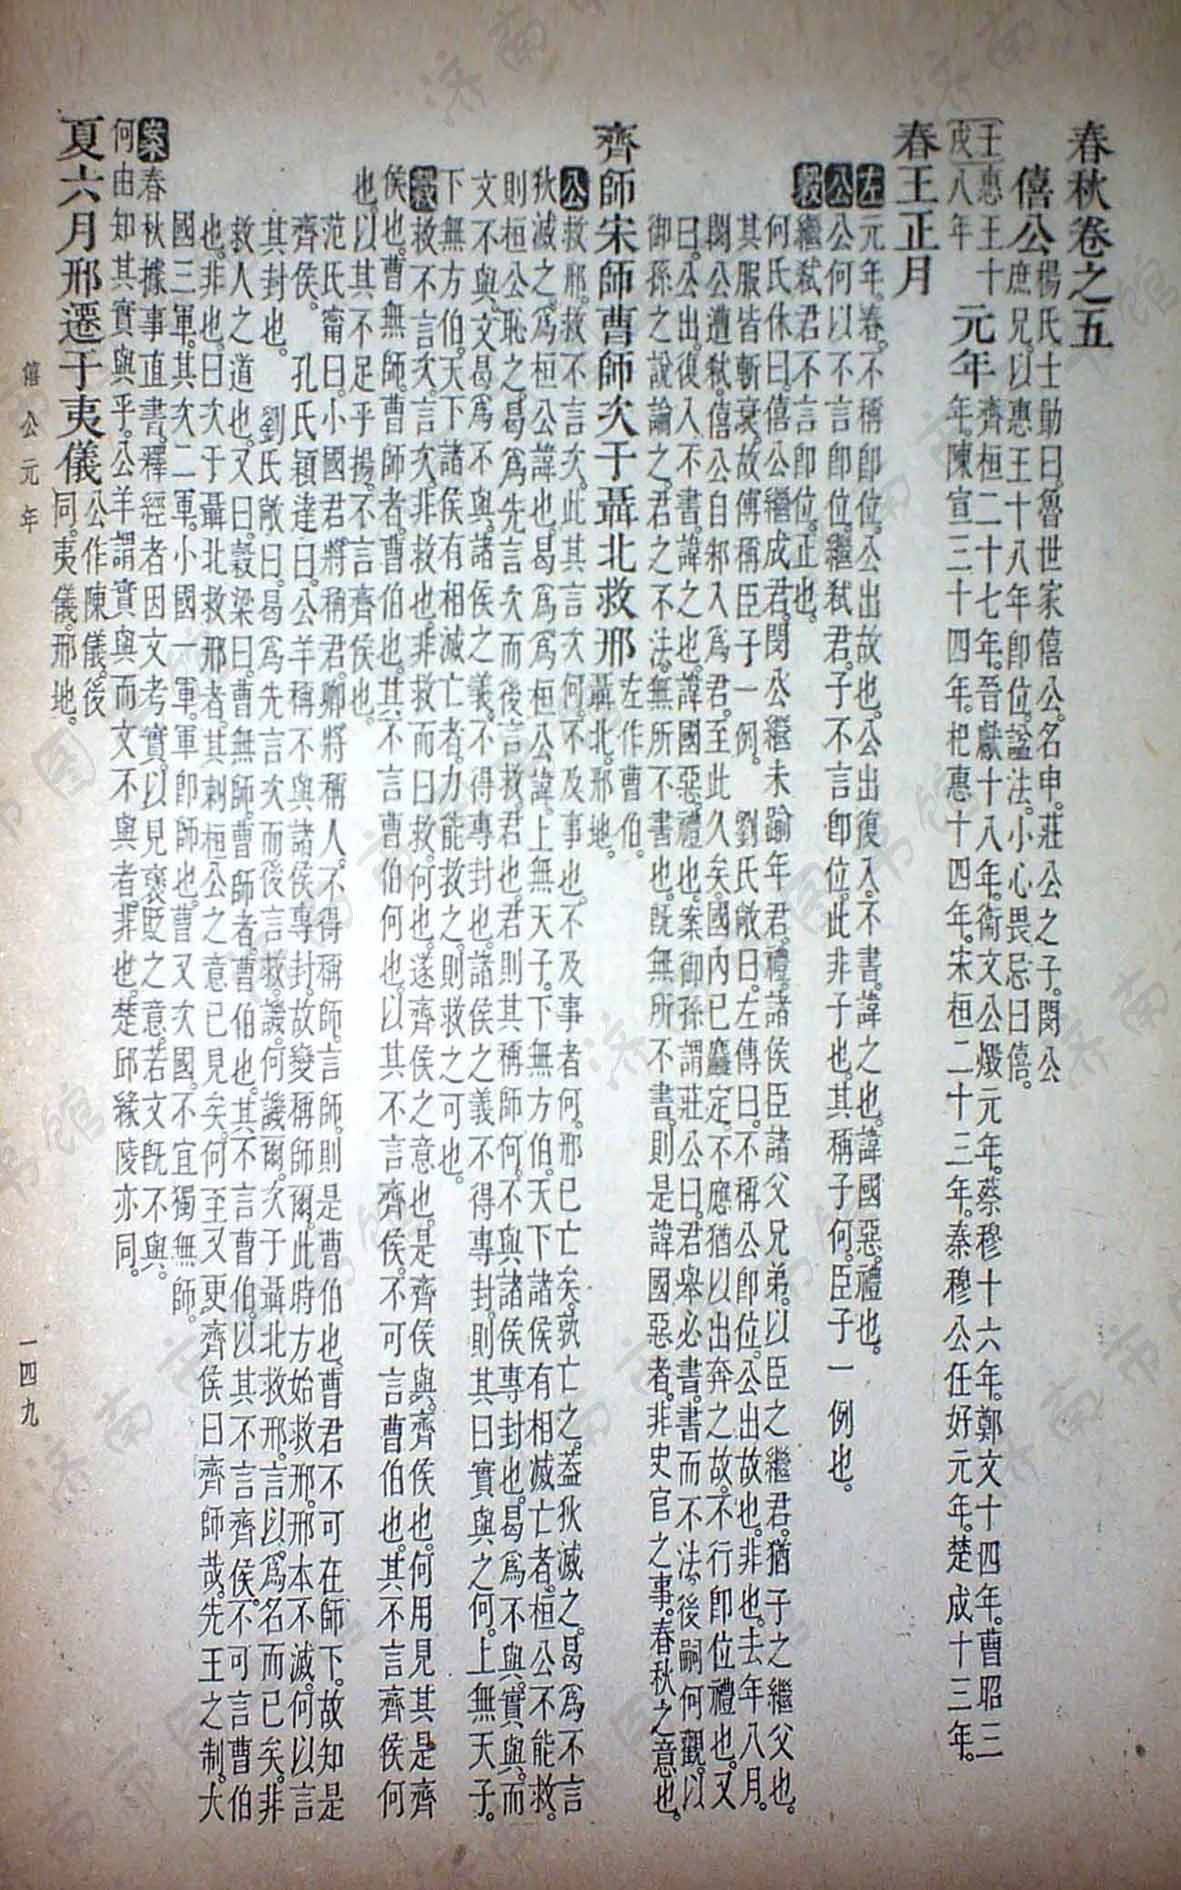 春秋卷之五
僖公楊氏士勛曰。魯世家僖公。名申。莊公之子。閔公
庶兄。以惠王十八年卽位。諡法。小心畏忌曰僖。
壬戌惠王十八年
元年齊桓二十七年。晉獻十八年。衞文公燬元年。蔡穆十六年。鄭文十四年。曹昭三
年。陳宣三十四年。杞惠十四年。宋桓二十三年。秦穆公任好元年。楚成十三年。
春王正月
左元年。春。不稱卽位。公出故也。公出復入。不書。諱之也。諱國惡。禮也。
公公何以不言卽位。繼弒君。子不言卽位。此非子也。其稱子何。臣子一例也。
穀繼弒君不言卽位。正也。
何氏休曰。僖公繼成君。閔公繼未踰年君。禮。諸侯臣諸父兄弟。以臣之繼君。猶子之繼父也。
其服皆斬衰。故傳稱臣子一例。　劉氏敞曰。左傳曰。不稱公卽位。公出故也。非也。去年八月。
閔公遭弒。僖公自邾入爲君。至此久矣。國內已麤定。不應猶以出奔之故。不行卽位禮也。又
曰。公出復入不書。諱之也。諱國惡。禮也。案御孫謂莊公曰。君舉必書。書而不法。後嗣何觀。以
御孫之說論之。君之不法。無所不書也。旣無所不書。則是諱國惡者。非史官之事。春秋之意也。
齊師宋師曹師次于聶北救邢左作曹伯。
聶北。邢地。
公救邢。救不言次。此其言次何。不及事也。不及事者何。邢已亡矣。孰亡之。蓋狄滅之。曷爲不言
狄滅之。爲桓公諱也。曷爲爲桓公諱。上無天子。下無方伯。天下諸侯有相滅亡者。桓公不能救。
則桓公恥之。曷爲先言次而後言救。君也。君則其稱師何。不與諸侯專封也。曷爲不與。實與。而
文不與。文曷爲不與。諸侯之義。不得專封也。諸侯之義不得專封。則其曰實與之何。上無天子。
下無方伯。天下諸侯有相滅亡者。力能救之。則救之可也。
穀救不言次。言次。非救也。非救而曰救。何也。遂齊侯之意也。是齊侯與。齊侯也。何用見其是齊
侯也。曹無師。曹師者。曹伯也。其不言曹伯何也。以其不言齊侯。不可言曹伯也。其不言齊侯何
也。以其不足乎揚。不言齊侯也。
范氏甯曰。小國君將稱君。卿將稱人。不得稱師。言師。則是曹伯也。曹君不可在師下。故知是
齊侯。　孔氏穎達曰。公羊稱不與諸侯專封。故變稱師爾。此時方始救邢。邢本不滅。何以言
其封也。　劉氏敞曰。曷爲先言次而後言救。譏。何譏爾。次于聶北救邢。言以爲名而已矣。非
救人之道也。又曰。穀梁曰。曹無師。曹師者。曹伯也。其不言曹伯。以其不言齊侯。不可言曹伯
也。非也。曰次于聶北救邢者。其刺桓公之意已見矣。何至又更齊侯曰齊師哉。先王之制。大
國三軍。其次二軍。小國一軍。軍卽師也。曹又次國。不宜獨無師。
案春秋據事直書。釋經者因文考實。以見襃貶之意。若文旣不與。
何由知其實與乎。公羊謂實與而文不與者。非也。楚邱緣陵亦同。
夏六月邢遷于夷儀公作陳儀。後
同。夷儀。邢地。
僖公元年
一四九